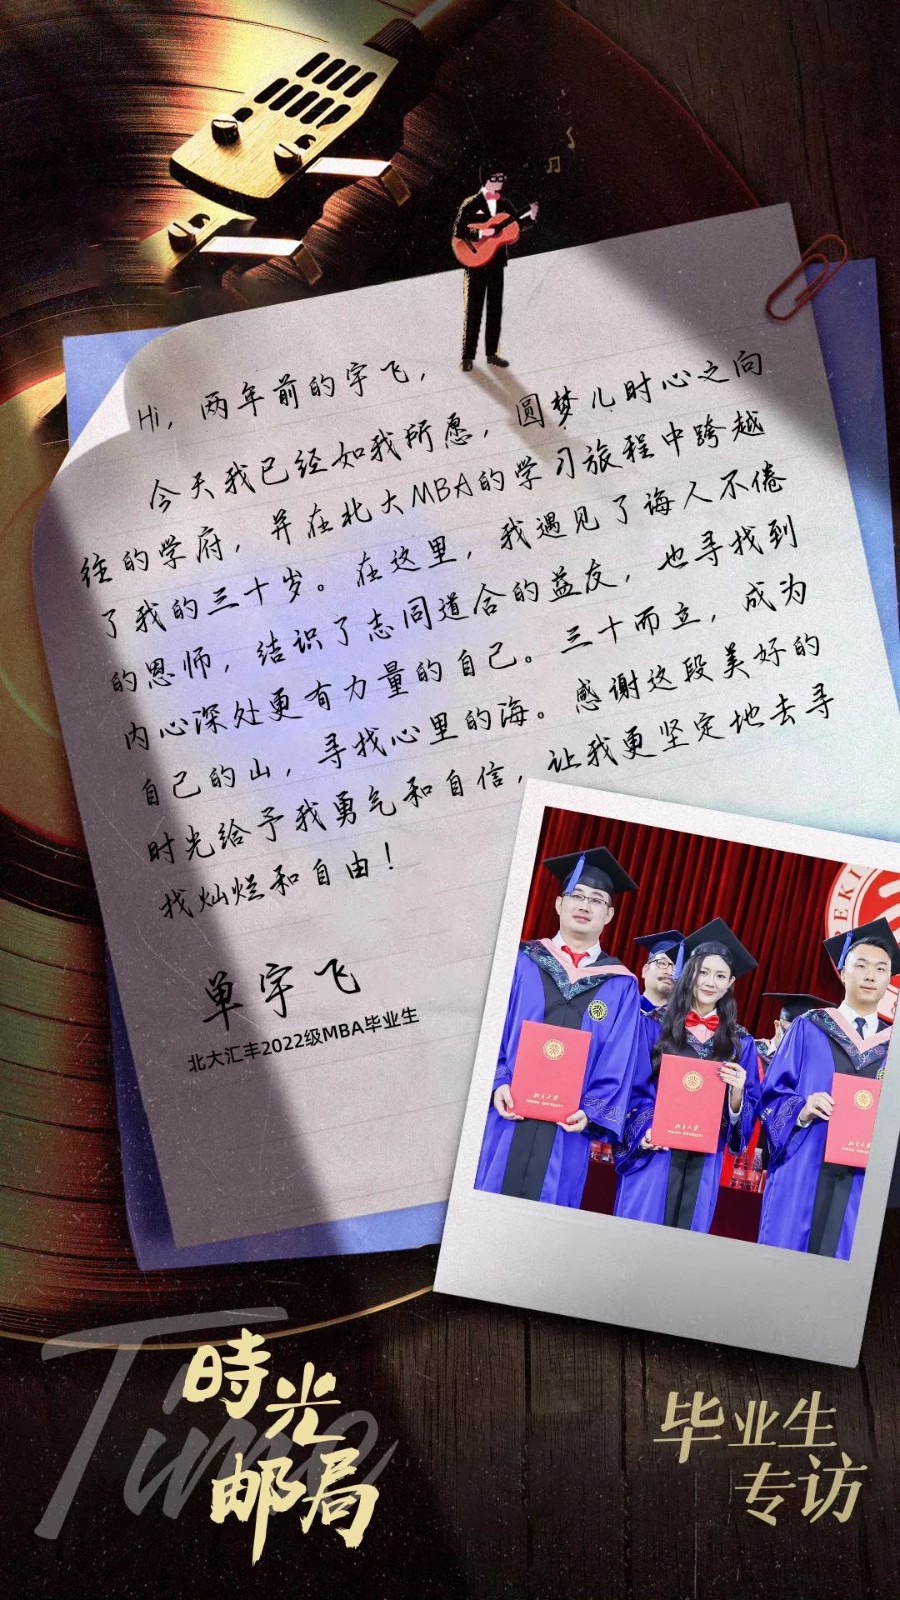 Hi, 两年前的宇飞,
今天我已经如我所愿, 圆梦儿时心之向
往的学府, 并在北大MBA的学习旅程中跨越
了我的三十岁。在这里, 我遇见了诲人不倦
的恩师, 结识了志同道合的益友, 也寻找到
内心深处更有力量的自己。三十而立, 成为
自己的山, 寻找心里的海。感谢这段美好的
时光给予我勇气和自信, 让我更坚定地去寻
找灿烂和自由!
单宇飞
北大汇丰2022级MBA毕业生
PEKI
北京大学
北京大学
北京大学
Time
時光
邮局
毕业生
专访